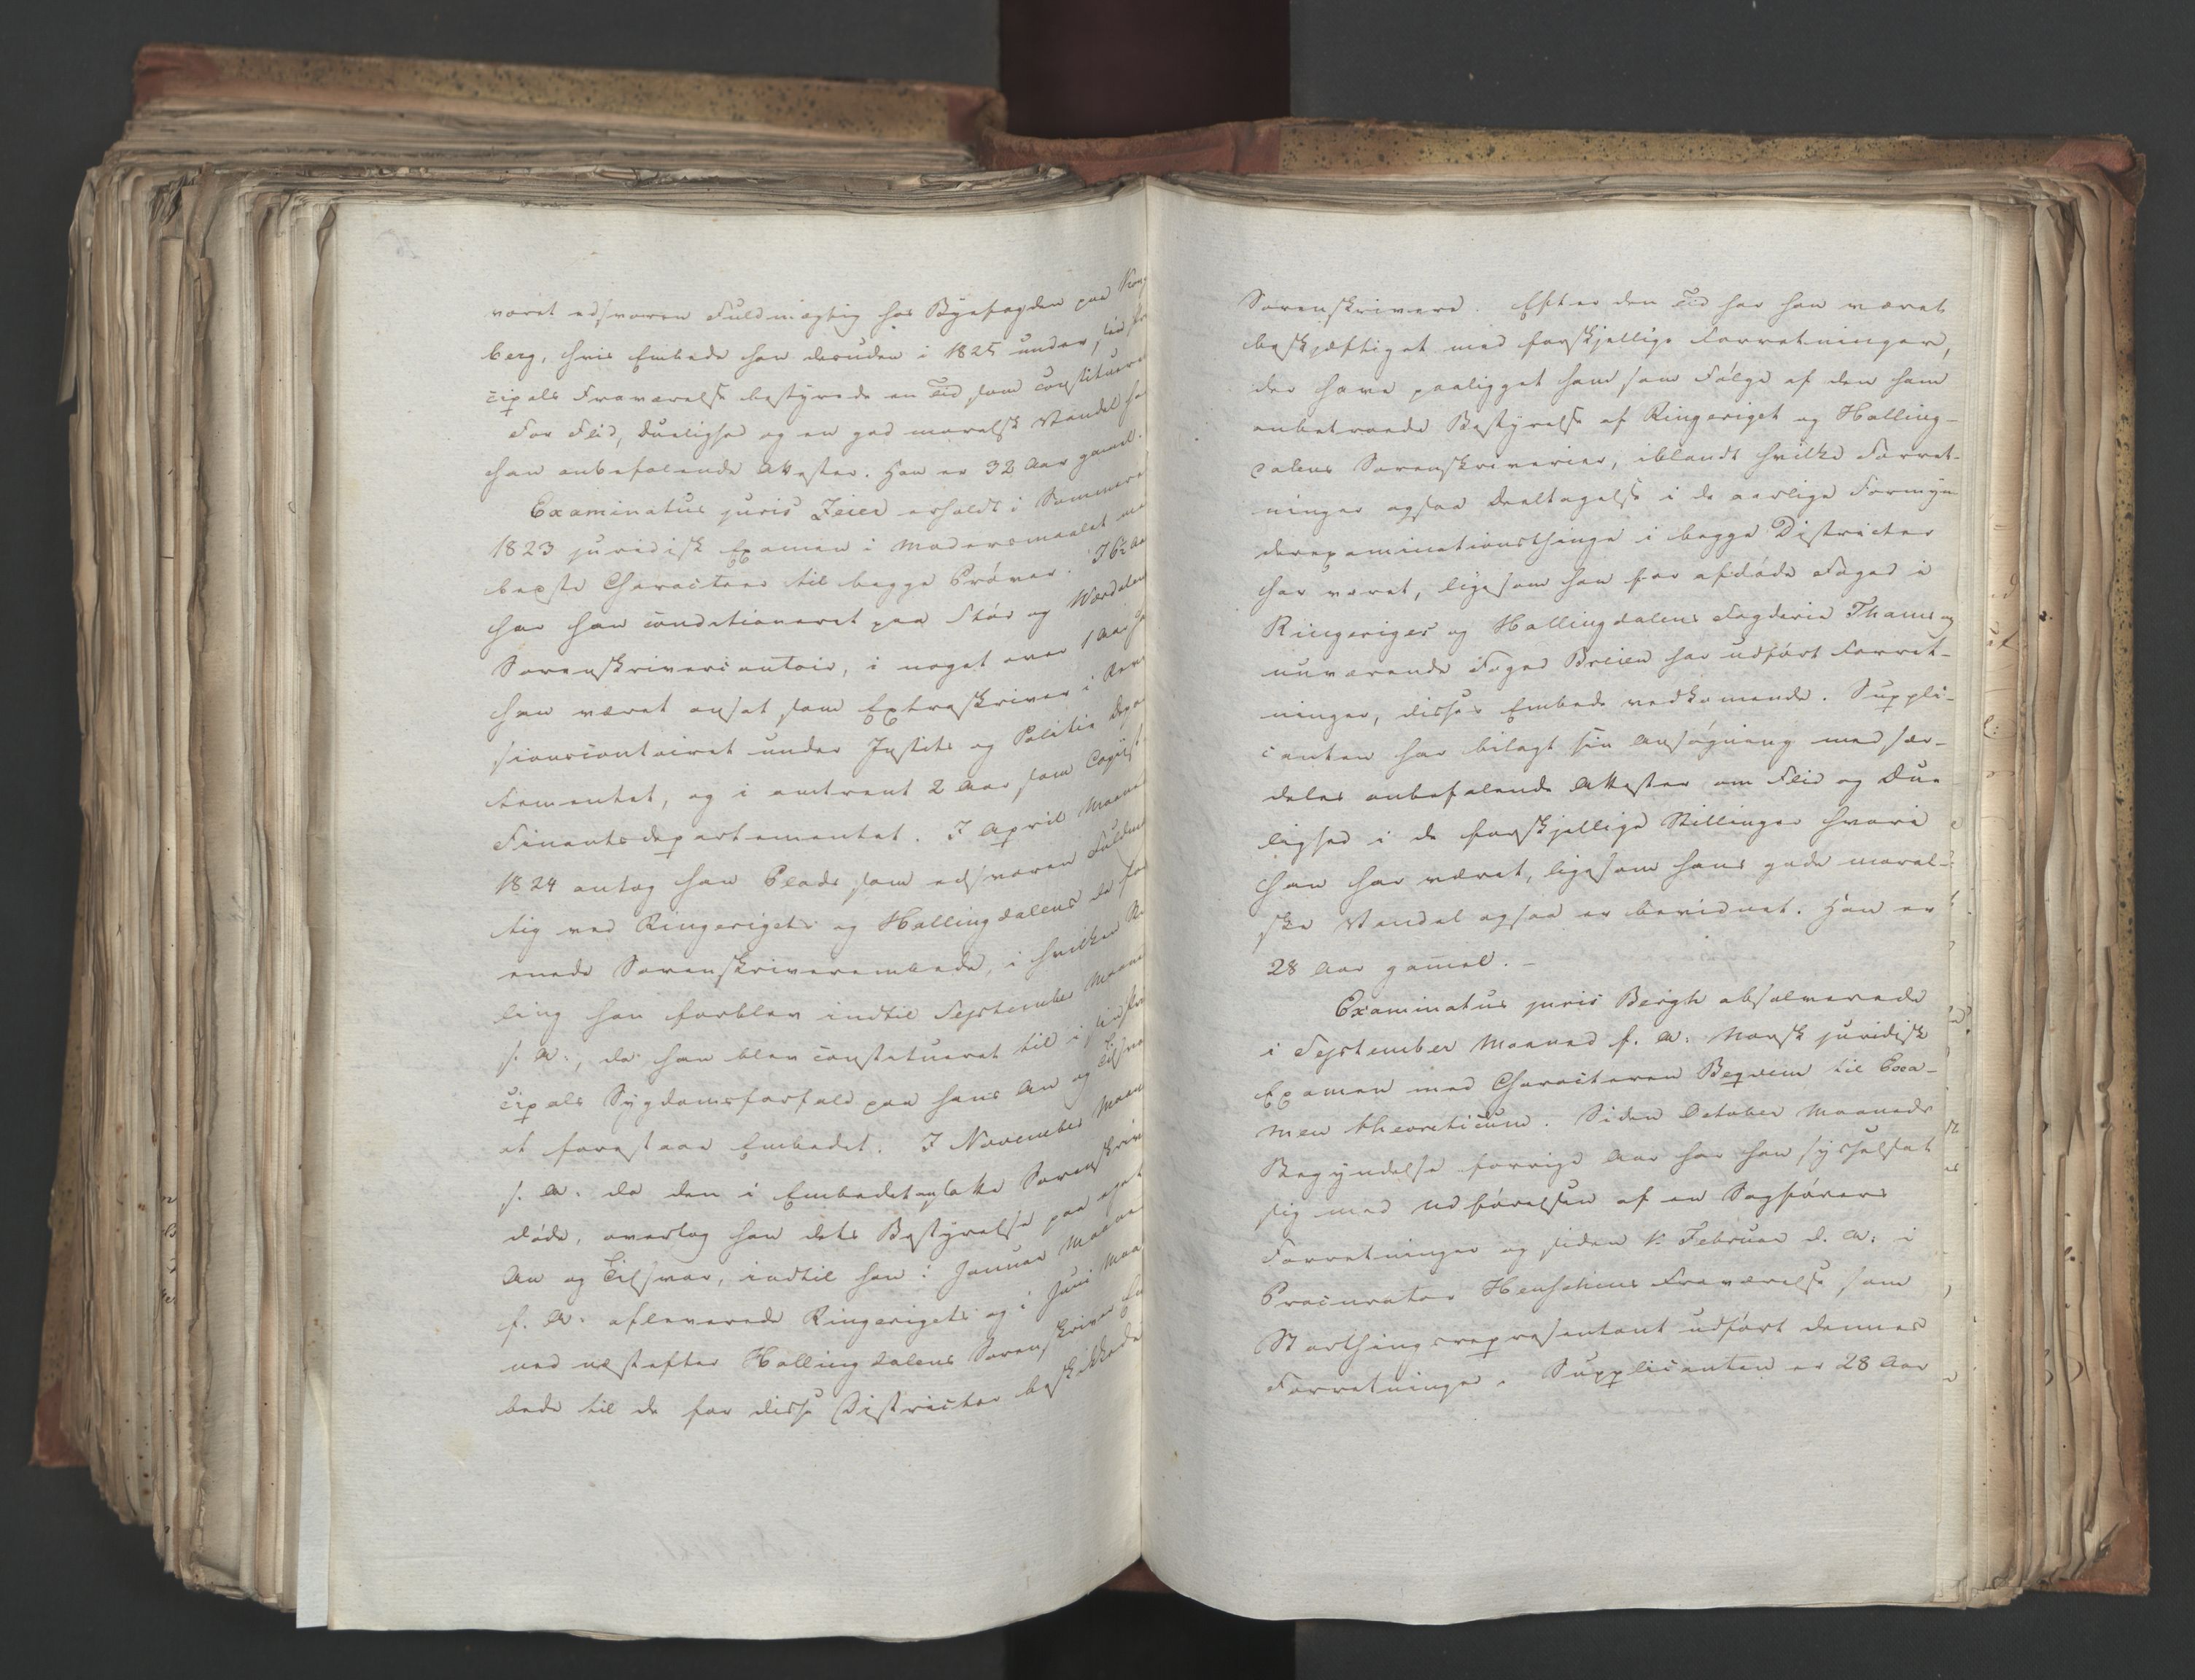 været edsvoren Fuldmægtig hos Byefogden paa Kongs
berg, hvis Embede han desuden i 1825 under sin Prin
cipals Fraværelse bestyrede en Tid som constitueret
For Flid, Duelighed og en god moralsk Vandel har
han anbefalende Attester. Han er 32 Aar gammel.
Examinatus juris Zeier erholdt i Sommeren
1823 juridisk Examen i Modersmaalet med
bedste Characteer til begge Prøver. I 6½ Aar
har han conditioneret paa Stør og Værdalens
Sorenskrivercontoir, i noget over 1 Aar har
han været ansat som Extraskriver i Revi
sionscontoiret under Justits og Politie Depar
tementet, og i omtrent 2 Aar som Copiist
Finantsdepartementet. I April Maaned
1824 antog han Plads som edsvoren Fuldmæg
tig ved Ringeriget og Hallingdalens da for
enede Sorenskriverembede, i hvilken Stil
ling han forblev indtil September Maaned
s. A., da han blev constitueret til i sin Prin
cipals Sygdomsforfald paa hans An og Tilsvar
at forestaae Embedet. I November Maaned
s. A. da den i Embedet ansatte Sorenskriver
døde, overtog han dets Bestyrelse paa eget
An og Tilsvar, indtil han i Januar Maaned
f. A. afleverede Ringerigets og i Juni Maa
ned næstefter Hallingdalens Sorenskriver Em
bede til de for disse Districter beskikkede
Sorenskrivere. Efter den Tid har han været
beskjæftiget med forskjellige Forretninger,
der have paaligget ham som Følge af den ham
anbetroede Bestyrelse af Ringeriget og Halling-
dalens Sorenskriverier, iblandt hvilke Forret-
ninger ogsaa Deeltagelse i de aarlige Formyn
derexaminationsthinge i begge Districter
har været, ligesom han for afdøde Foged i
Ringeriges og Hallingdalens Fogderie Thams og
nuværende Foged Breien har udført Forret-
ninger, disses Embede vedkommende. Suppli-
canten har bilagt sin Ansøgning med sær-
deles anbefalende Attester om Flid og Due
lighed i de forskjellige Stillinger hvori
han har været, ligesom hans gode moral-
ske Vandel ogsaa er bevidnet. Han er
28 Aar gammel. -
Examinatus juris Bergh absolverede
i September Maaned f. A. norsk juridisk
Examen med Characteren Beqvem til Exa-
men theoreticum. Siden October Maaneds
Begyndelse forrige Aar har han sysselsat
sig med Udførelsen af en Sagførers
Forretninger og siden 1. Februar d. A. i
Procurator Henschiens Fraværelse som
Storthingsrepresentant udført dennes
Forretninger. Supplicanten er 28 Aar